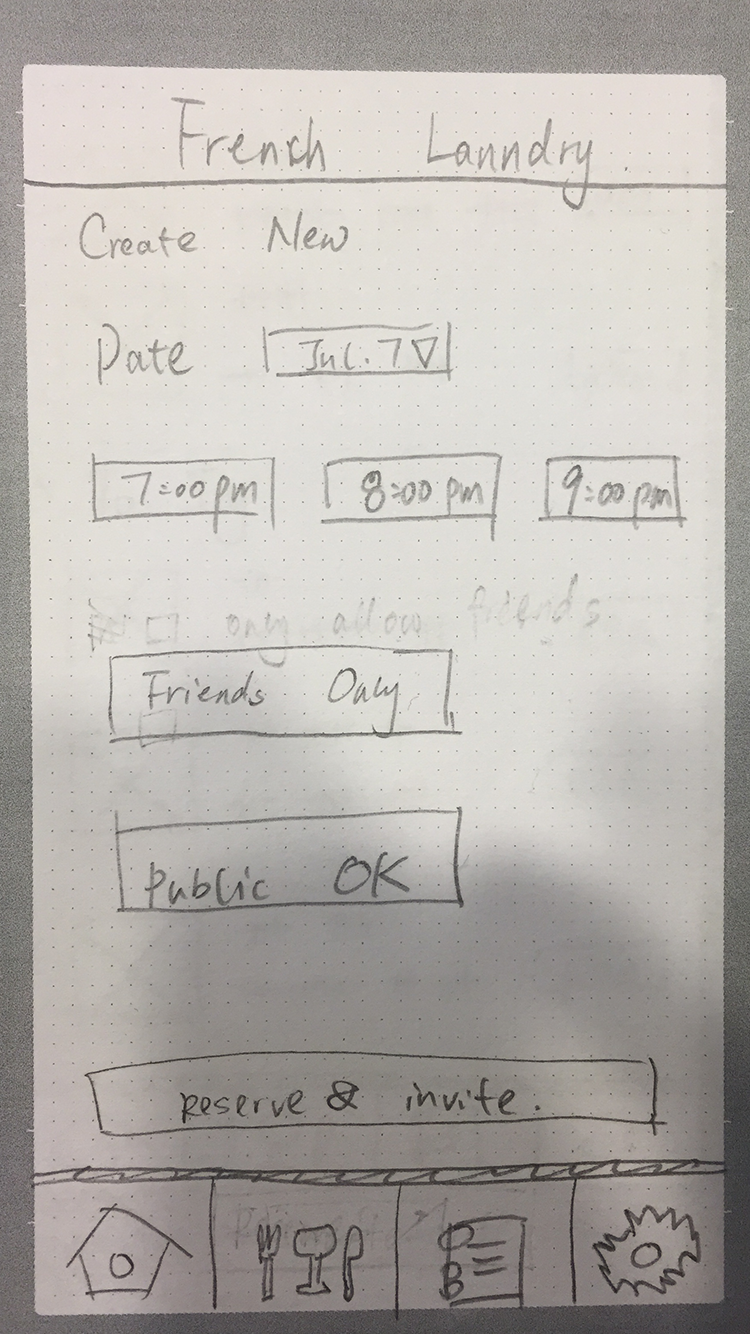 French Lanndry
Create New
Date Jul. 7
7:00 pm 8:00 pm 9:00 pm
only allow friends
Friends Only
Public OK
Reserve & invite.